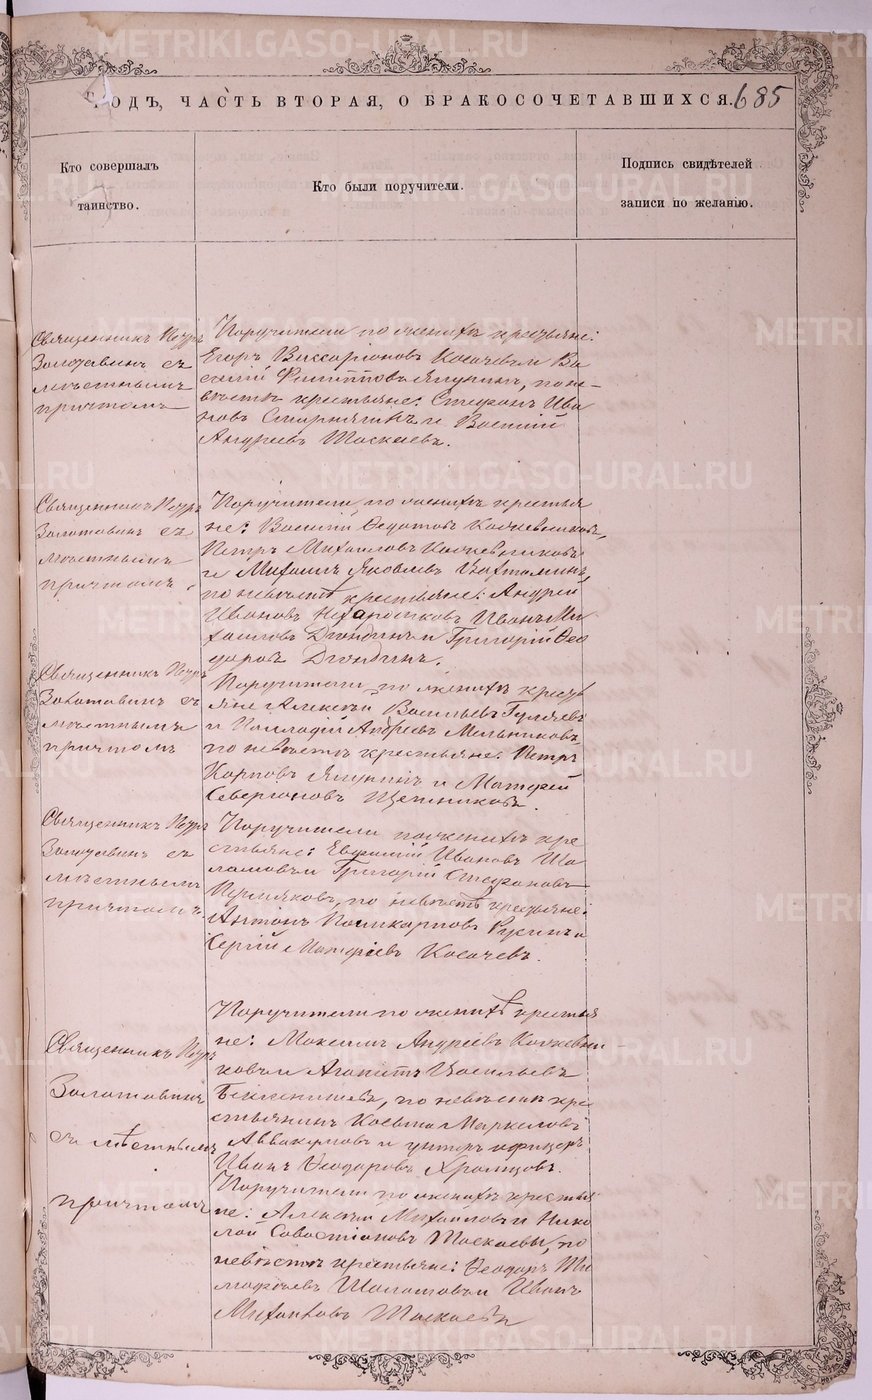 ГОДЪ, ЧАСТЬ ВТОРАЯ, О БРАКОСОЧЕТАВШИХСЯ. 685
Кто совершалъ
таинство.
Кто были поручители.
Подпись свидѣтелей
записи по желанію.
Священникъ Петръ
Золотавинъ съ
мѣстнымъ
причтомъ
Поручители по женихѣ крестьяне:
Егоръ Виссаріоновъ Косачевъ и Ва
силій Филипповъ Ялунинъ, по не-
вѣстѣ крестьяне: Стефанъ Ива
новъ и Василій
Андреевъ Таскаевъ.
Священникъ Петръ
Золотавинъ съ
мѣстнымъ
причтомъ,
Поручители по женихѣ крестья
не: Василій Федотовъ Кожевниковъ,
Петръ Михайловъ Кожевниковъ
и Михаилъ Яковлевъ
по невѣстѣ крестьяне: Андрей
Ивановъ Иванъ Ми
хайловъ Дюндинъ и Григорій Ѳео
доровъ Дюндинъ.
Священникъ Петръ
Золотавинъ съ
мѣстнымъ
причтомъ
Поручители по женихѣ кресть
яне Алексѣй Васильевъ Гуляевъ
и Палладій Андреевъ Мельниковъ,
по невѣстѣ крестьяне: Петръ
Карповъ Ялунинъ и Матфей
Севергановъ Щетниковъ.
Священникъ Петръ
Золотавинъ съ
мѣстнымъ
причтомъ
Поручители по женихѣ кре
стьяне: Евфимій Ивановъ Ша
ламовъ и Григорій Стефановъ
Пермяковъ, по невѣстѣ крестьяне:
Антонъ Поликарповъ Рукинъ и
Сергій Матфіевъ Косачевъ.
Священникъ Петръ
Золотавинъ
съ мѣстнымъ
причтомъ
Поручители по женихѣ крестья
не: Максимъ Андреевъ Кожевни-
ковъ и Агапитъ Васильевъ
Бекленищевъ, по невѣстѣ кре
стьянинъ Косьма Маркеловъ
Аввакумовъ и унтеръ офицеръ
Иванъ Ѳеодоровъ Храмцовъ.
Поручители по женихѣ крестья
не: Алексѣй Михайловъ и Нико
лай Савастіановъ Таскаевы, по
невѣстѣ крестьяне: Ѳеодоръ Ти
мофеевъ Шаламовъ и Иванъ
Михайловъ Таскаевъ
METRIKI.GASO-URAL.RU